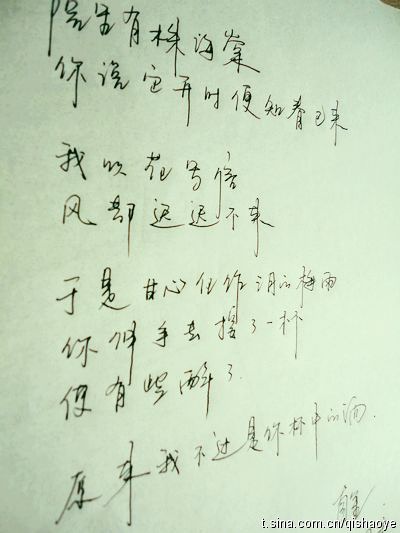 院里有株海棠
你说它开时便知春已来
我以花为信
风却迟迟不来
于是甘心化作泪的梅雨
你伸手去接了一杯
便有些醉了
原来我不过是你杯中的酒.
t.sina.com.cn/qishaoye